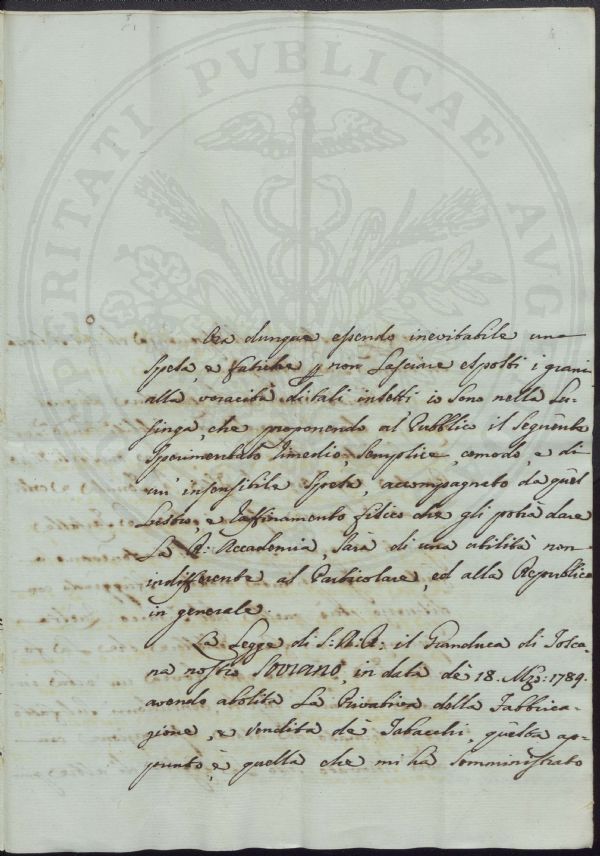 PROSPERITATI PVBLICAE AVG
Ora dunque essendo inevitabile una
spesa, e fatiche p non lasciare esposti i grani
alla voracità di tali insetti io sono nella Lu-
singa, che proponendo al Pubblico il seguente
sperimentato rimedio, semplice, comodo, e di
un' insensibile spesa, accompagnato da quel
Lustro, e raffinamento fisico che gli potrà dare
La R: Accademia, sarà di una utilità non
indifferente al Particolare, ed alla Repubblica
in generale.
La Legge di S: A: R: il Granduca di Tosca-
na nostro SOVRANO, in data de 18. Mzo: 1789.
avendo abolita La Privativa della Fabbrica-
zione, e vendita de Tabacchi, questa ap-
punto, è quella che mi ha somministrato